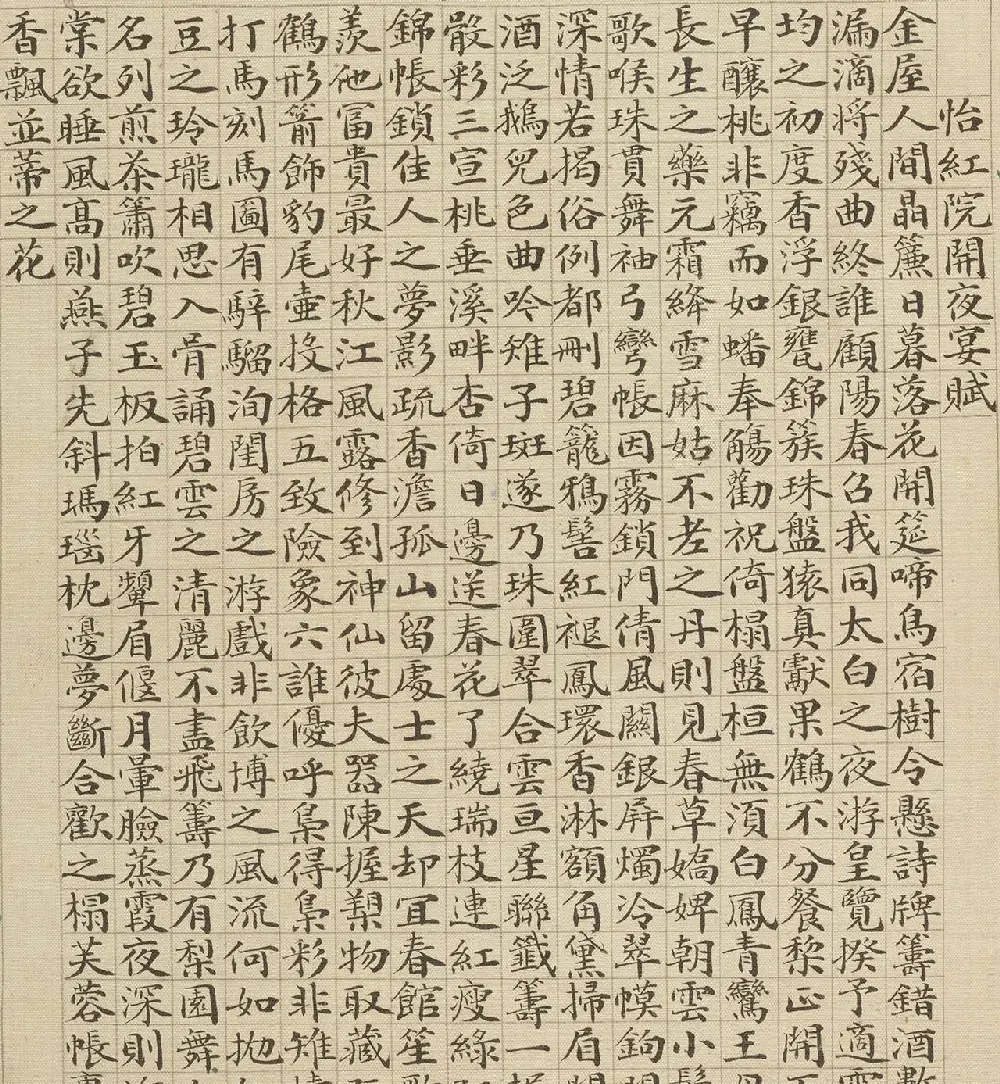 怡紅院開夜宴賦
金屋人間晶簾日暮落花開筵啼鳥宿樹令懸詩牌籌錯酒數
漏滴將殘曲終誰顧陽春召我同太白之夜游皇覽揆予適
均之初度香浮銀甕錦簇珠盤猿真獻果鶴不分餐黎正開
早釀桃非竊而如蟠奉觴勸祝倚榻盤桓無須白鳳青鸞王
長生之藥元霜絳雪麻姑不老之丹則見春草嬌婢朝雲小
歌喉珠貫舞袖弓彎帳因霧鎖門倩風關銀屏燭冷翠幙鉤
深情若揭俗例都刪碧籠鴉髻紅褪鳳環香淋額角黛掃眉
酒泛鵝兒色曲吟雉子斑遂乃珠圍翠合雲亘星聯籤籌一
骰彩三宣桃垂溪畔杏倚日邊送春花了繞瑞枝連紅瘦綠
錦帳鎖佳人之夢影疏香澹孤山留處士之天却宜春館笙
羨他富貴最好秋江風露修到神仙彼夫器陳握槊物取藏
鶴形箭飾豹尾壺投格五致險象六誰優呼梟得梟彩非雉
打馬刻馬圖有騂騮洵閨房之游戲非飲博之風流何如拋
豆之玲瓏相思入骨誦碧雲之清麗不盡飛籌乃有梨園舞
名列煎茶簫吹碧玉板拍紅牙顰眉偃月暈臉蒸霞夜深則
棠欲睡風高則燕子先斜瑪瑙枕邊夢斷合歡之榻芙蓉帳
香飄並蒂之花